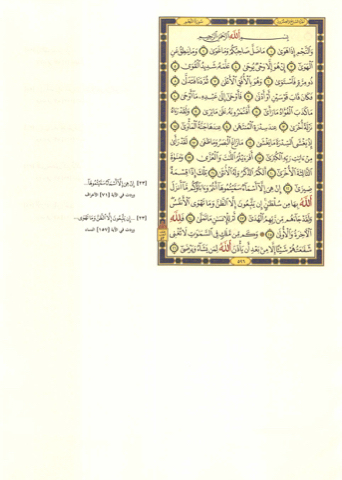 بِسْمِ اللَّهِ الرَّحْمَٰنِ الرَّحِيمِ
وَالنَّجْمِ إِذَا هَوَىٰ ١ مَا ضَلَّ صَاحِبُكُمْ وَمَا غَوَىٰ ٢ وَمَا يَنطِقُ عَنِ
الْهَوَىٰ ٣ إِنْ هُوَ إِلَّا وَحْيٌ يُوحَىٰ ٤ عَلَّمَهُ شَدِيدُ الْقُوَىٰ ٥
ذُو مِرَّةٍ فَاسْتَوَىٰ ٦ وَهُوَ بِالْأُفُقِ الْأَعْلَىٰ ٧ ثُمَّ دَنَا فَتَدَلَّىٰ ٨
فَكَانَ قَابَ قَوْسَيْنِ أَوْ أَدْنَىٰ ٩ فَأَوْحَىٰ إِلَىٰ عَبْدِهِ مَا أَوْحَىٰ ١٠
مَا كَذَبَ الْفُؤَادُ مَا رَأَىٰ ١١ أَفَتُمَارُونَهُ عَلَىٰ مَا يَرَىٰ ١٢ وَلَقَدْ رَآهُ
نَزْلَةً أُخْرَىٰ ١٣ عِندَ سِدْرَةِ الْمُنتَهَىٰ ١٤ عِندَهَا جَنَّةُ الْمَأْوَىٰ ١٥
إِذْ يَغْشَى السِّدْرَةَ مَا يَغْشَىٰ ١٦ مَا زَاغَ الْبَصَرُ وَمَا طَغَىٰ ١٧ لَقَدْ رَأَىٰ
مِنْ آيَاتِ رَبِّهِ الْكُبْرَىٰ ١٨ أَفَرَأَيْتُمُ اللَّاتَ وَالْعُزَّىٰ ١٩ وَمَنَاةَ
الثَّالِثَةَ الْأُخْرَىٰ ٢٠ أَلَكُمُ الذَّكَرُ وَلَهُ الْأُنثَىٰ ٢١ تِلْكَ إِذًا قِسْمَةٌ
ضِيزَىٰ ٢٢ إِنْ هِيَ إِلَّا أَسْمَاءٌ سَمَّيْتُمُوهَا أَنتُمْ وَآبَاؤُكُم مَّا أَنزَلَ
اللَّهُ بِهَا مِن سُلْطَانٍ إِن يَتَّبِعُونَ إِلَّا الظَّنَّ وَمَا تَهْوَى الْأَنفُسُ
وَلَقَدْ جَاءَهُم مِّن رَّبِّهِمُ الْهُدَىٰ ٢٣ أَمْ لِلْإِنسَانِ مَا تَمَنَّىٰ ٢٤ فَلِلَّهِ
الْآخِرَةُ وَالْأُولَىٰ ٢٥ وَكَم مِّن مَّلَكٍ فِي السَّمَاوَاتِ لَا تُغْنِي
شَفَاعَتُهُمْ شَيْئًا إِلَّا مِن بَعْدِ أَن يَأْذَنَ اللَّهُ لِمَن يَشَاءُ وَيَرْضَىٰ ٢٦
٥٢٦
[٢٣] إِنْ هِيَ إِلَّا أَسْمَاءٌ سَمَّيْتُمُوهَا...
وردت في الآية [٧١] الأعراف
[٢٣] ... إِن يَتَّبِعُونَ إِلَّا الظَّنَّ وَمَا تَهْوَى...
وردت في الآية [١٥٧] النساء